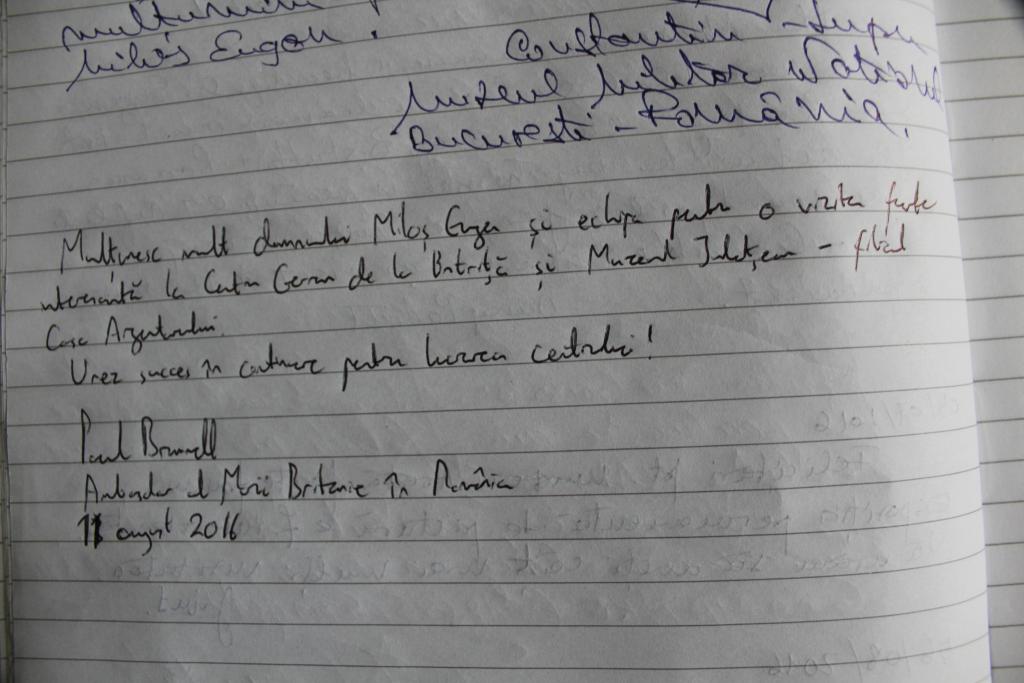 mulțumim
Miloș Eugen.
Constantin - Lupu
Muzeul Militar Național
București - România.
Mulțumesc mult domnului Miloș Eugen și echipa pentru o vizita foarte
interesantă la Centrul German de la Bistriță și Muzeul Județean - filial
Casa Argintarului.
Urez succes în continuare pentru lucrarea centrului!
Paul Brummell
Ambasador al Marii Britanie în România
11 august 2016